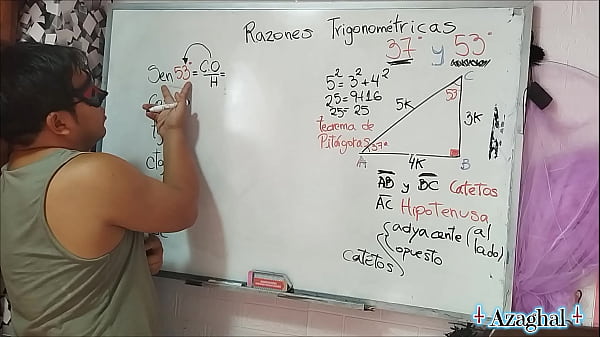 Razones Trigonométricas
37° y 53°
Sen 53 = C.O =
H
5² = 3² + 4²
25 = 9+16
25 = 25
teorema de
Pitágoras
C
53
5K
3K
37°
A
4K
B
AB y BC Catetos
AC Hipotenusa
Catetos
adyacente (al lado)
opuesto
+ Azaghal +